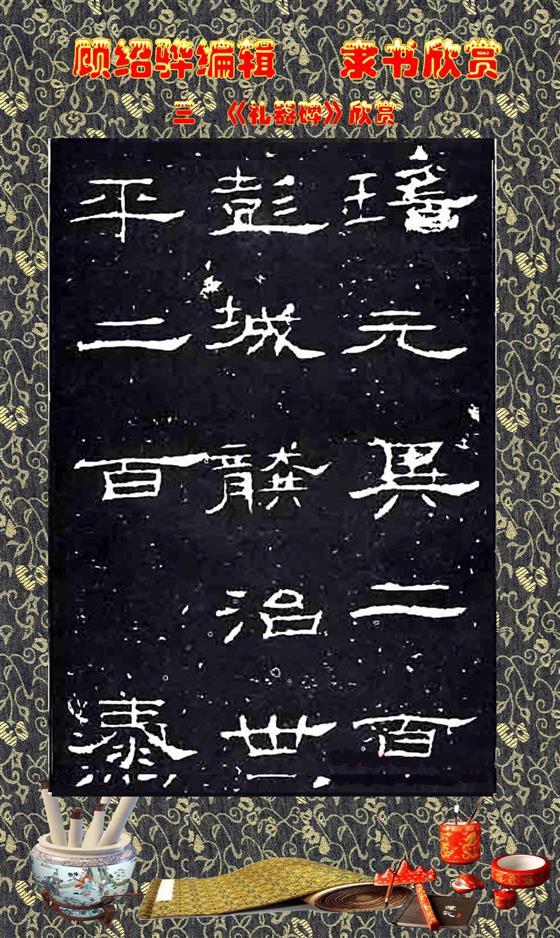 顾绍骅编辑 隶书欣赏
三 《礼器碑》欣赏
璠元異二百
彭城龔治世
平二百泰